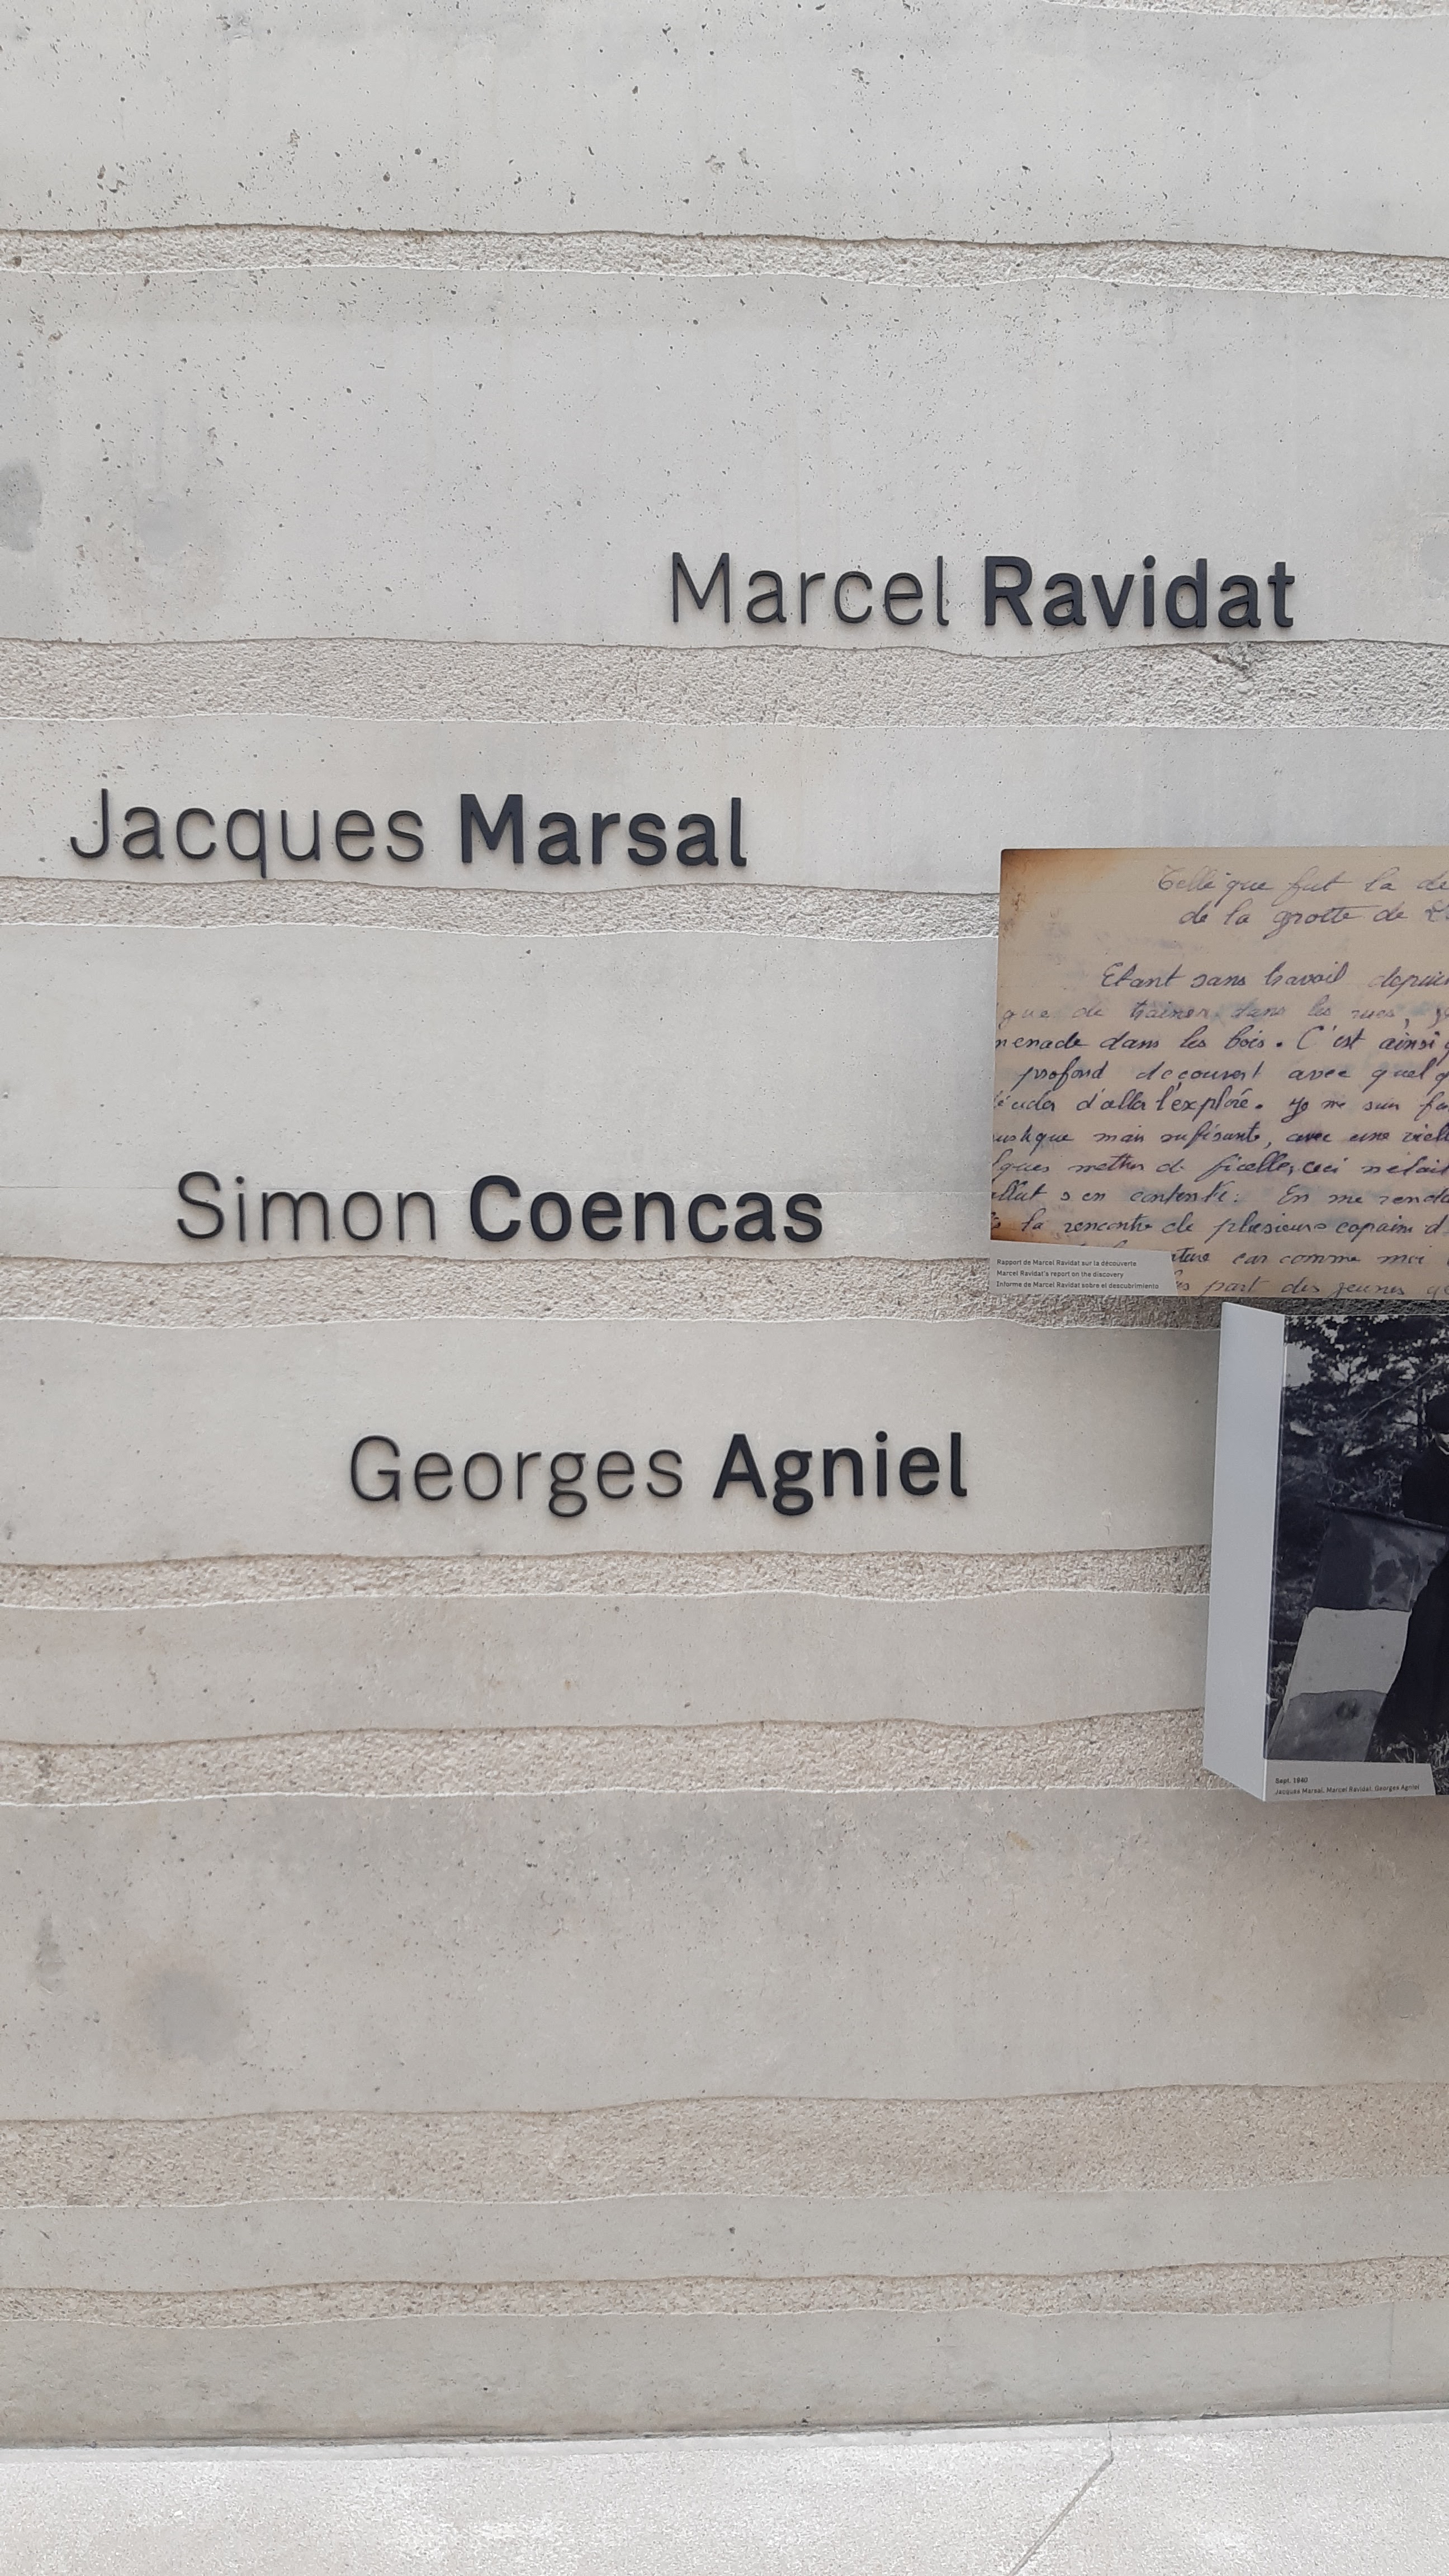 Marcel Ravidat
Jacques Marsal
Simon Coencas
Georges Agniel
Telle que fut la de
de la grotte de
Etant sans travail depuis
que de trainer dans les rues,
menade dans les bois. C'est ainsi q
profond decouvert avec quelq
d'aller l'explore. Je me suis fa
mais sufisante, avec une vieil
ques metres de ficelle, ceci n'etait
allut s'en contente. En me renda
la rencontre de plusieurs copains d
ture car comme moi
s part des jeunes
Rapport de Marcel Ravidat sur la découverte
Marcel Ravidat's report on the discovery
Informe de Marcel Ravidat sobre el descubrimiento
Sept. 1940
Jacques Marsal, Marcel Ravidat, Georges Agniel